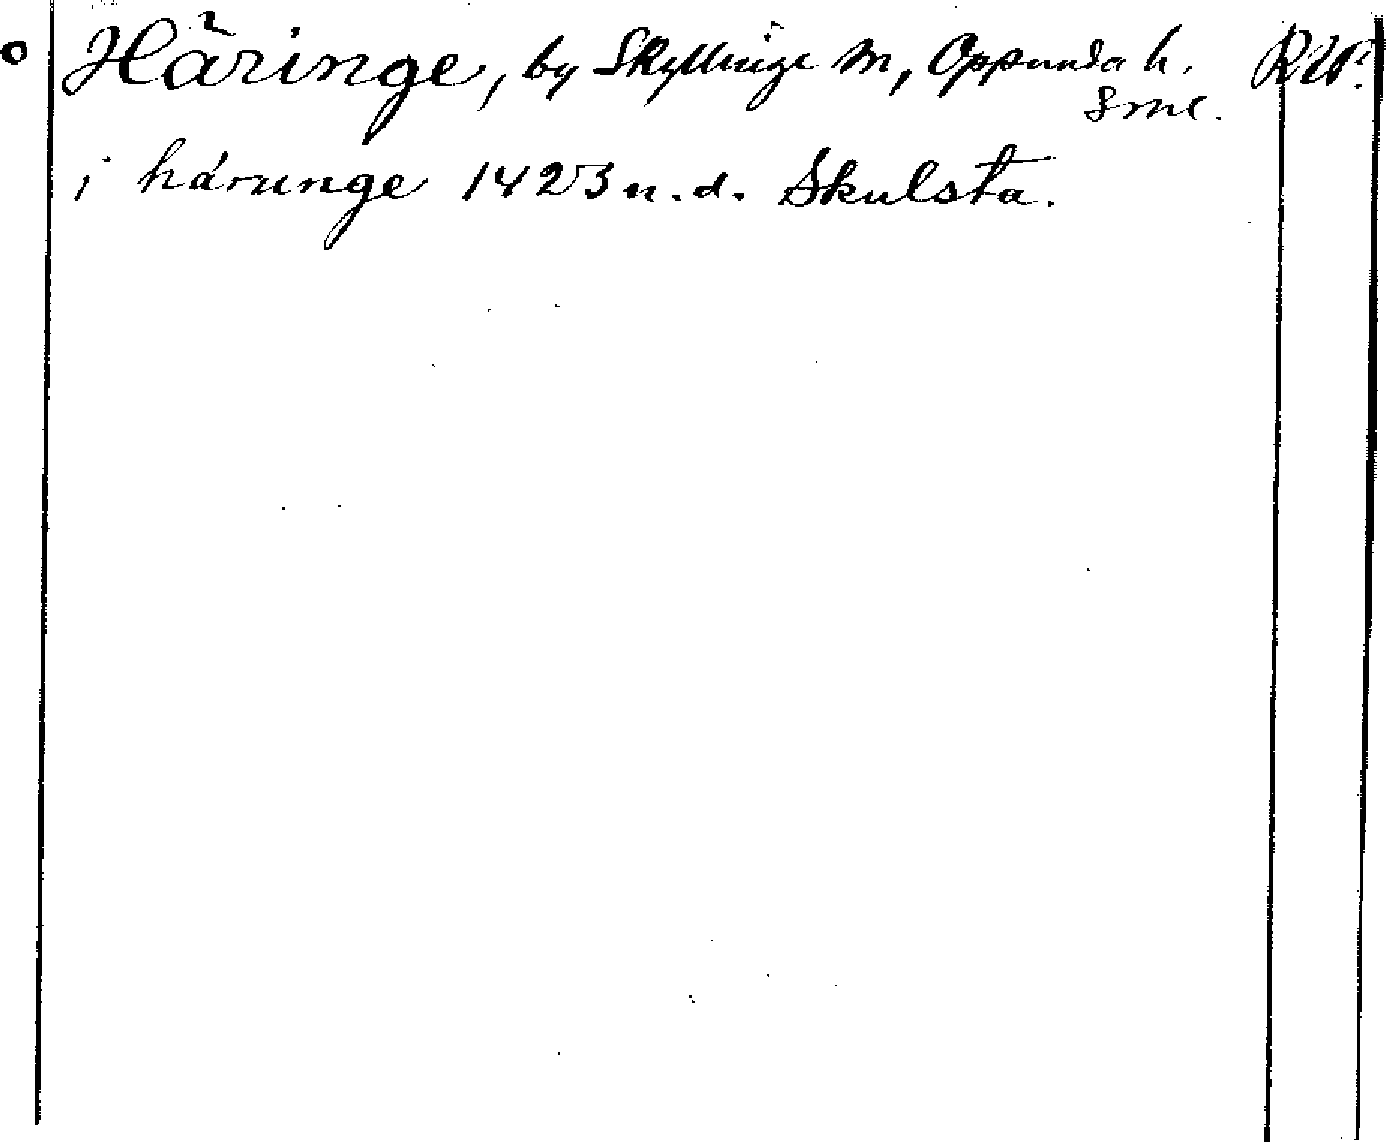 Häringe, by Skyllinge sn, Oppunda h. RW.
Srml.
i hárunge 1423 n.d. Skulsta.